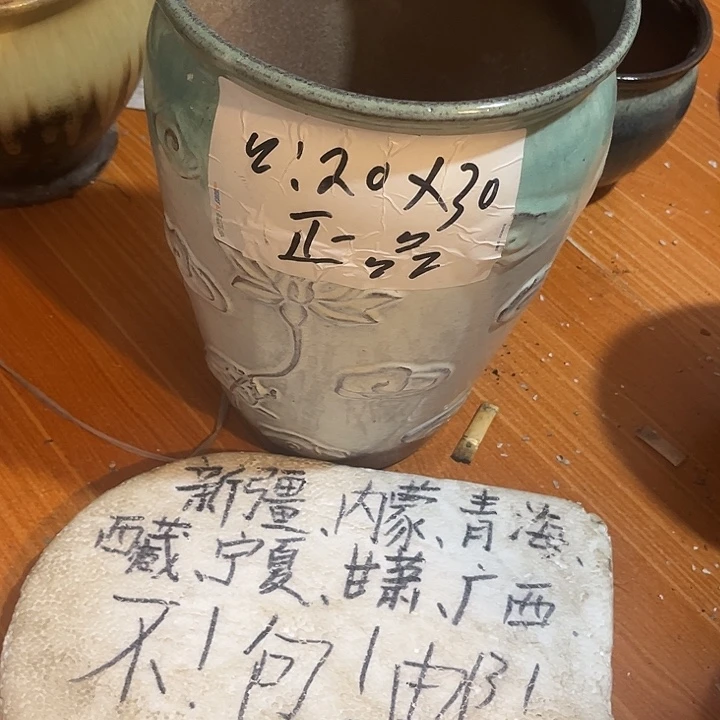 口:20X30
正品
新疆、内蒙、青海、
西藏、宁夏、甘萧、广西.
不!包!邮!